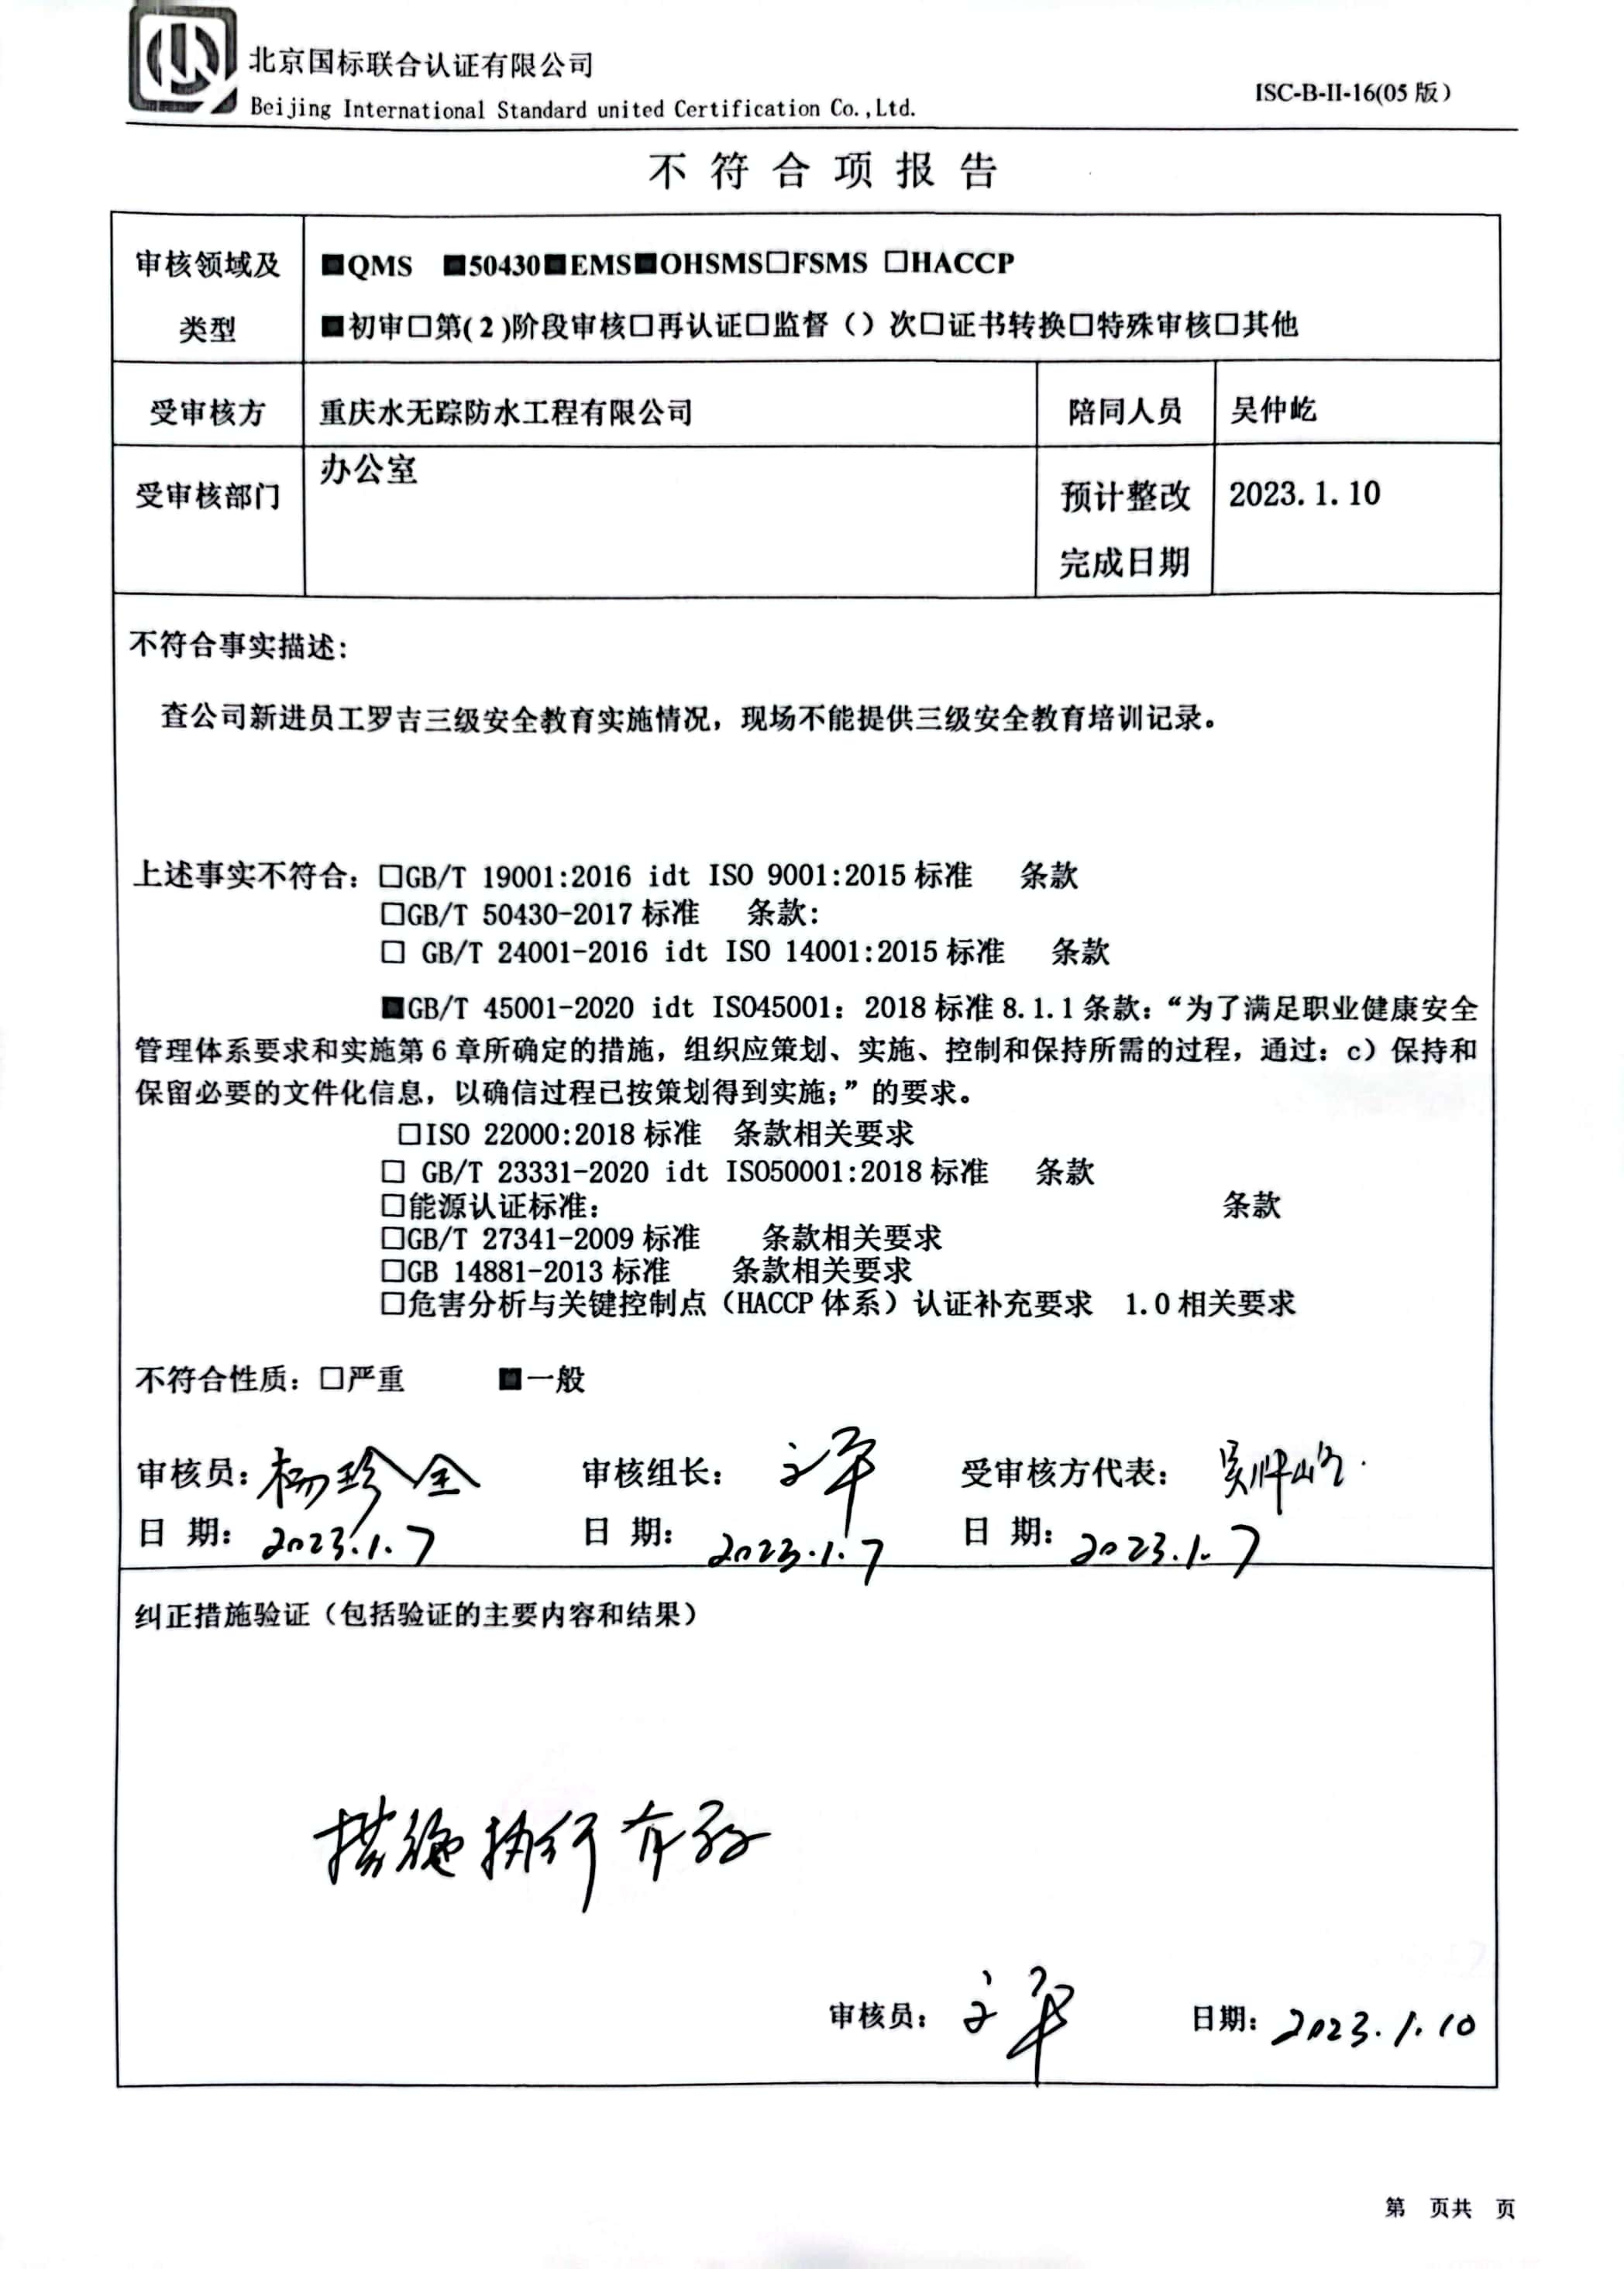 北京国标联合认证有限公司
Beijing International Standard united Certification Co.,Ltd.
ISC-B-II-16(05 版)
不符合项报告
审核领域及类型
■QMS ■50430■EMS■OHSMS□FSMS □HACCP
■初审□第(2)阶段审核□再认证□监督()次□证书转换□特殊审核□其他
受审核方 重庆水无踪防水工程有限公司 陪同人员 吴仲屹
受审核部门 办公室 预计整改完成日期 2023.1.10
不符合事实描述:
查公司新进员工罗吉三级安全教育实施情况，现场不能提供三级安全教育培训记录。
上述事实不符合：□GB/T 19001:2016 idt ISO 9001:2015 标准 条款
□GB/T 50430-2017 标准 条款:
□ GB/T 24001-2016 idt ISO 14001:2015 标准 条款
■GB/T 45001-2020 idt ISO45001：2018 标准 8.1.1 条款：“为了满足职业健康安全
管理体系要求和实施第 6 章所确定的措施，组织应策划、实施、控制和保持所需的过程，通过：c）保持和
保留必要的文件化信息，以确信过程已按策划得到实施;”的要求。
□ISO 22000:2018 标准 条款相关要求
□ GB/T 23331-2020 idt ISO50001:2018 标准 条款
□能源认证标准： 条款
□GB/T 27341-2009 标准 条款相关要求
□GB 14881-2013 标准 条款相关要求
□危害分析与关键控制点（HACCP 体系）认证补充要求 1.0 相关要求
不符合性质：□严重 ■一般
审核员：杨珍全 审核组长：文平 受审核方代表：吴仲屹
日 期：2023.1.7 日 期：2023.1.7 日 期：2023.1.7
纠正措施验证（包括验证的主要内容和结果）
措施执行有效
审核员：文平 日期：2023.1.10
第 页共 页